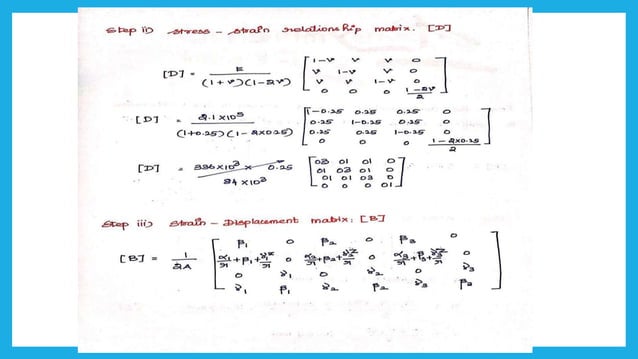 Step ii) stress - strain relationship matrix. [D]
[D] = E / (1+ν)(1-2ν) [1-ν ν ν 0
ν 1-ν ν 0
ν ν 1-ν 0
0 0 0 1-2ν/2]
[D] = 2.1×10⁵ / (1+0.25)(1-2×0.25) [1-0.25 0.25 0.25 0
0.25 1-0.25 0.25 0
0.25 0.25 1-0.25 0
0 0 0 1-2×0.25/2]
[D] = 336×10³ × 0.25
84×10³
[03 01 01 0
01 03 01 0
01 01 03 0
0 0 0 01]
Step iii) Strain - Displacement matrix: [B]
[B] = 1/2A [β₁ 0 β₂ 0 β₃ 0
0 γ₁ 0 γ₂ 0 γ₃
γ₁ β₁ γ₂ β₂ γ₃ β₃]